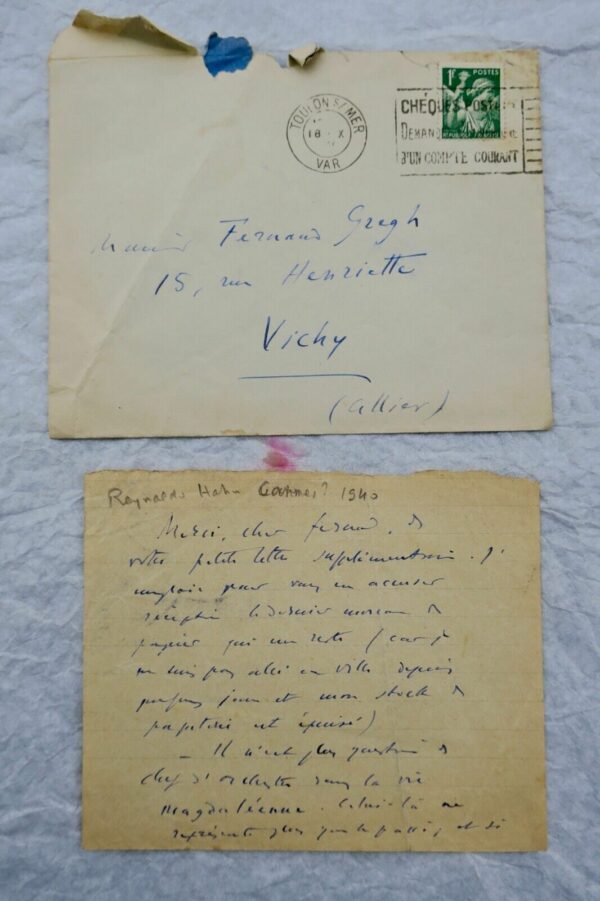 TOULON S/ MER
18 X
VAR
1F POSTES
CHÈQUES POSTAUX
D'UN COMPTE COURANT
Monsieur Fernand Gregh
15, rue Henriette
Vichy
(Allier)
Reynaldo Hahn Cannes? 1940
Merci, cher Fernand, de
votre petite lettre supplémentaire. J'
emploie pour vous en accuser
réception le dernier morceau de
papier qui me reste (car je
ne suis pas allé en ville depuis
jours et mon stock de
papeterie est épuisé)
_ Il n'est plus question de
chef d'orchestre dans la vie
magdalénienne. Celui-là ne
représente plus que le passé, et si